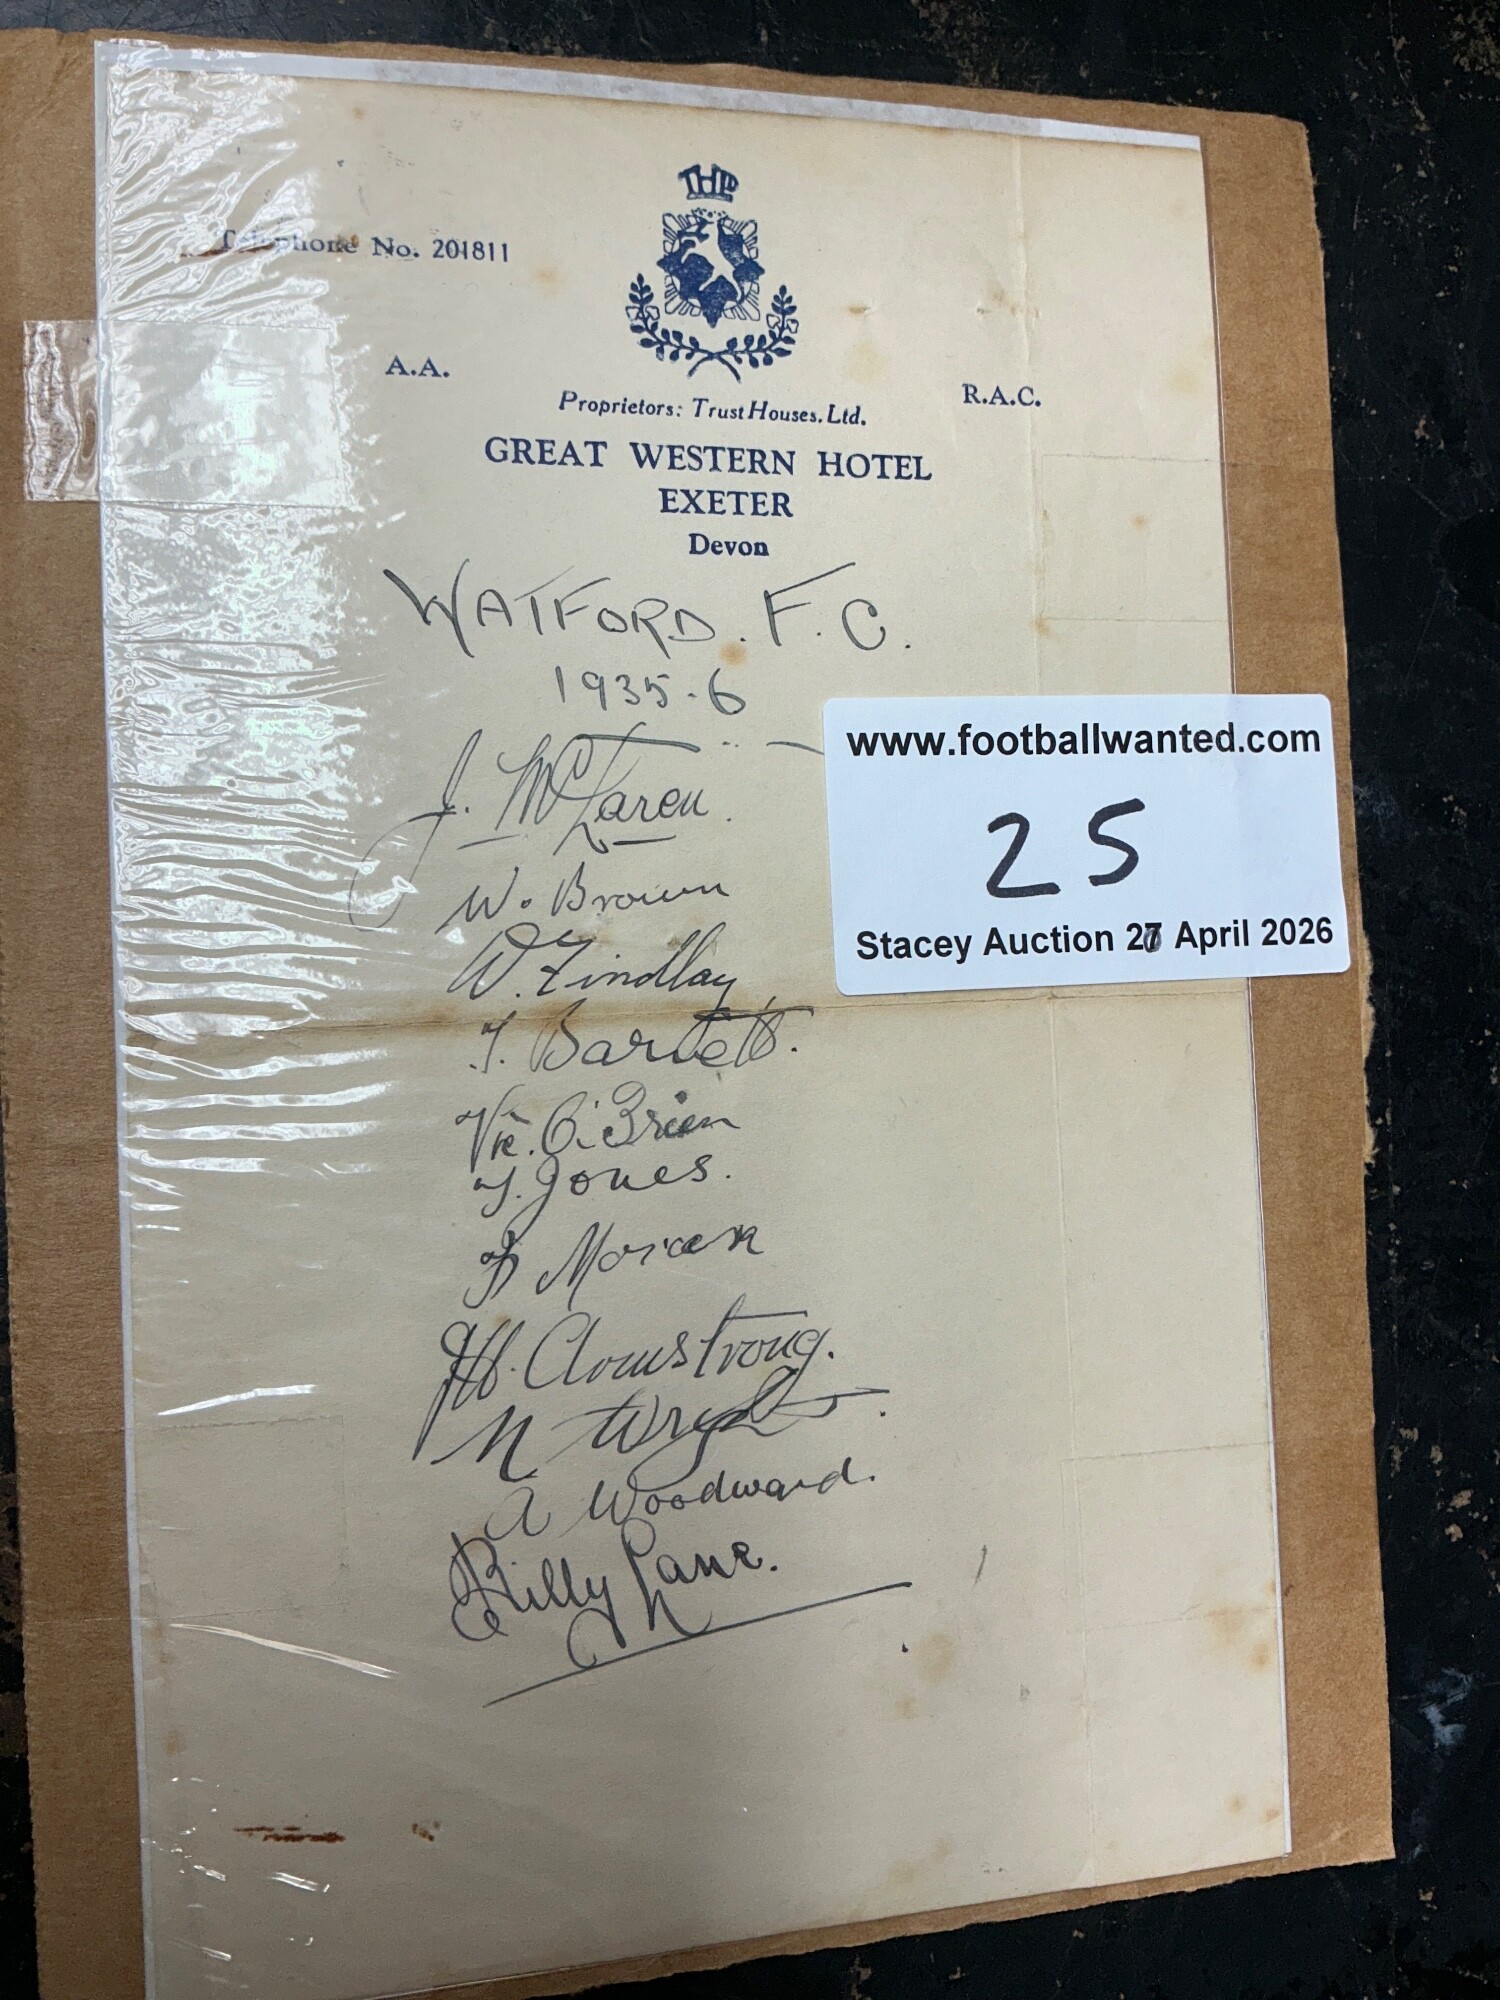 THL
Telephone No. 201811
A.A.
R.A.C.
Proprietors: Trust Houses, Ltd.
GREAT WESTERN HOTEL
EXETER
Devon
WATFORD. F.C.
1935-6
J. McLaren.
W. Brown
W. Findlay
T. Barnett.
Vic. O'Brien
T. Jones.
Moran
J.H. Armstrong.
A Woodward.
Billy Lane.
www.footballwanted.com
25
Stacey Auction 27 April 2026